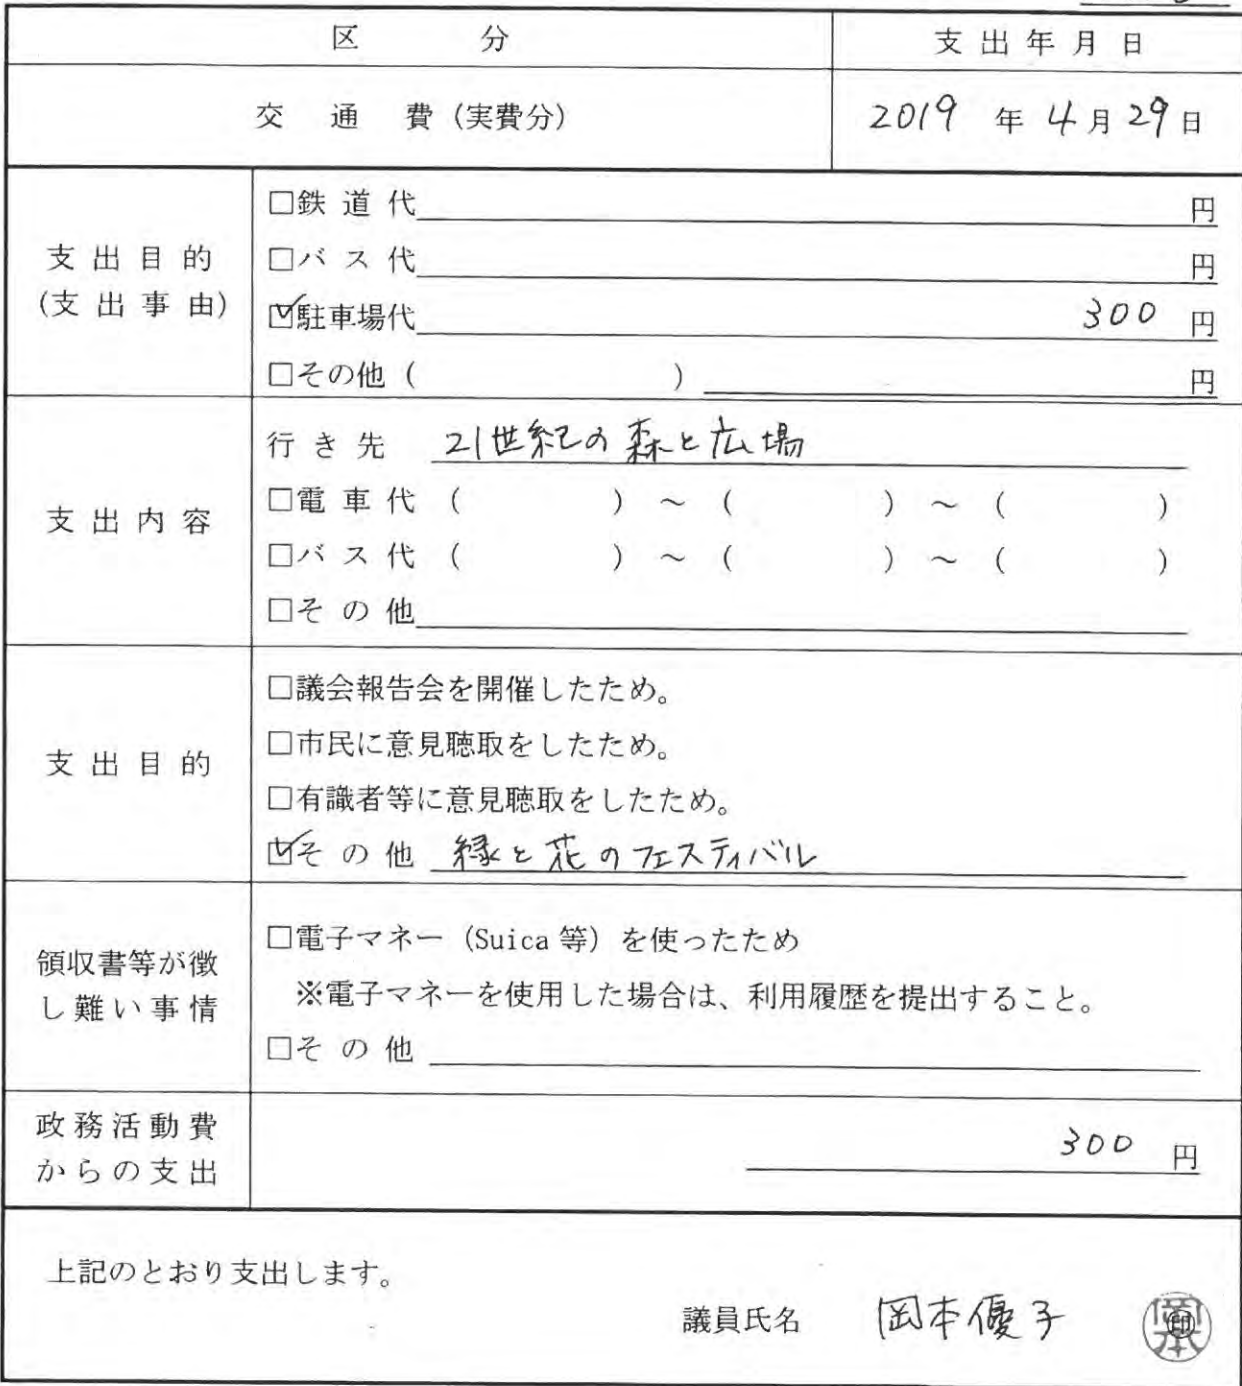 区 分 支出年月日
交 通 費 (実費分) 2019 年 4月 29日
支出目的
(支出事由)
□鉄 道 代 円
□バ ス 代 円
☑駐車場代 300 円
□その他 ( ) 円
支出内容
行き先 21世紀の森と広場
□電 車 代 ( ) ~ ( ) ~ ( )
□バ ス 代 ( ) ~ ( ) ~ ( )
□そ の 他
支出目的
□議会報告会を開催したため。
□市民に意見聴取をしたため。
□有識者等に意見聴取をしたため。
☑そ の 他 緑と花のフェスティバル
領収書等が徴
し難い事情
□電子マネー (Suica 等) を使ったため
※電子マネーを使用した場合は、利用履歴を提出すること。
□そ の 他
政務活動費
からの支出
300 円
上記のとおり支出します。
議員氏名 岡本優子 印